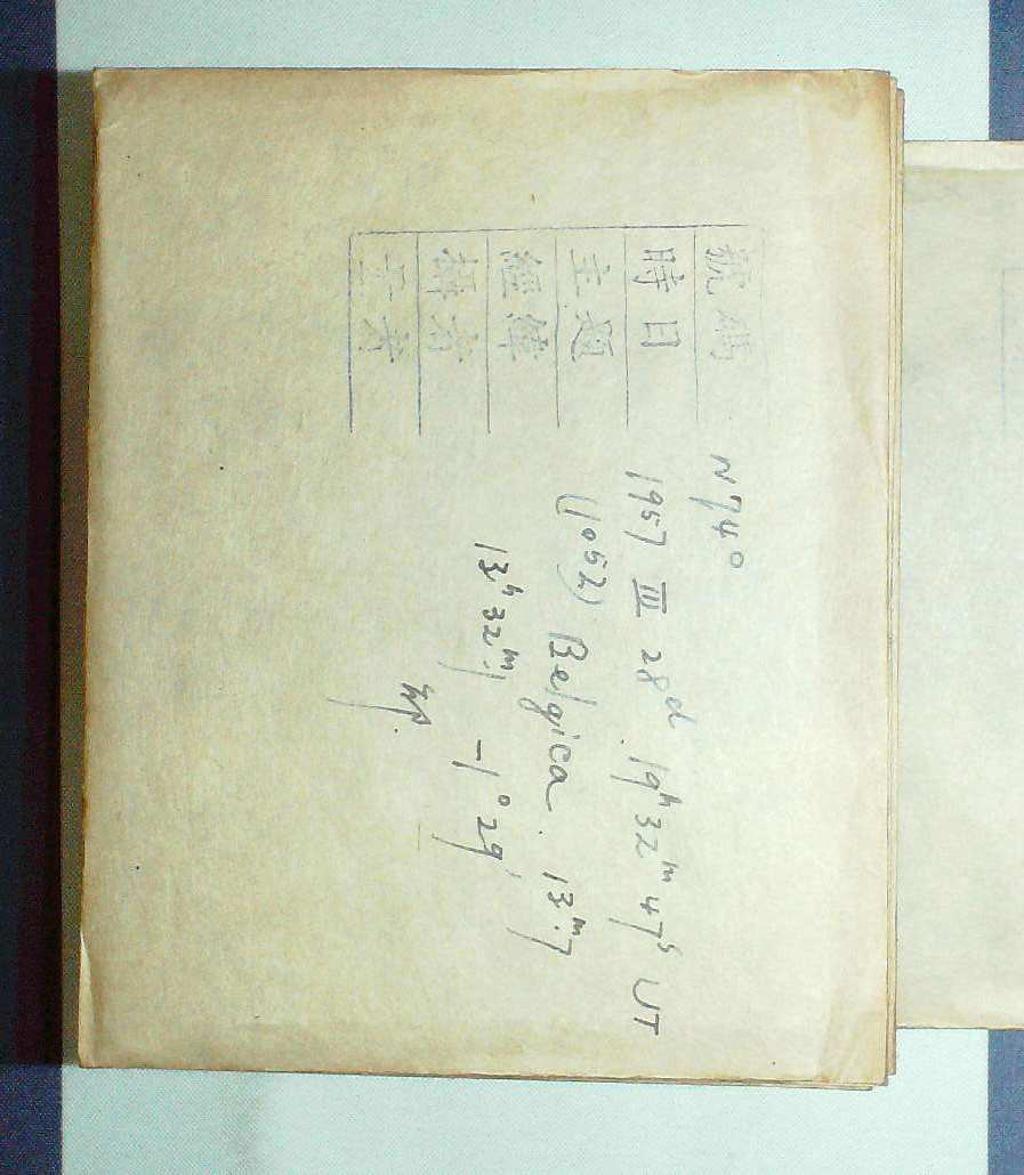 號碼 N74°
時日 1957 III 28ᵈ 19ʰ32ᵐ47ˢ UT
主題 (1052) Belgica. 13ᵐ.7
經緯 13ʰ32ᵐ.7 -1°29'
攝者